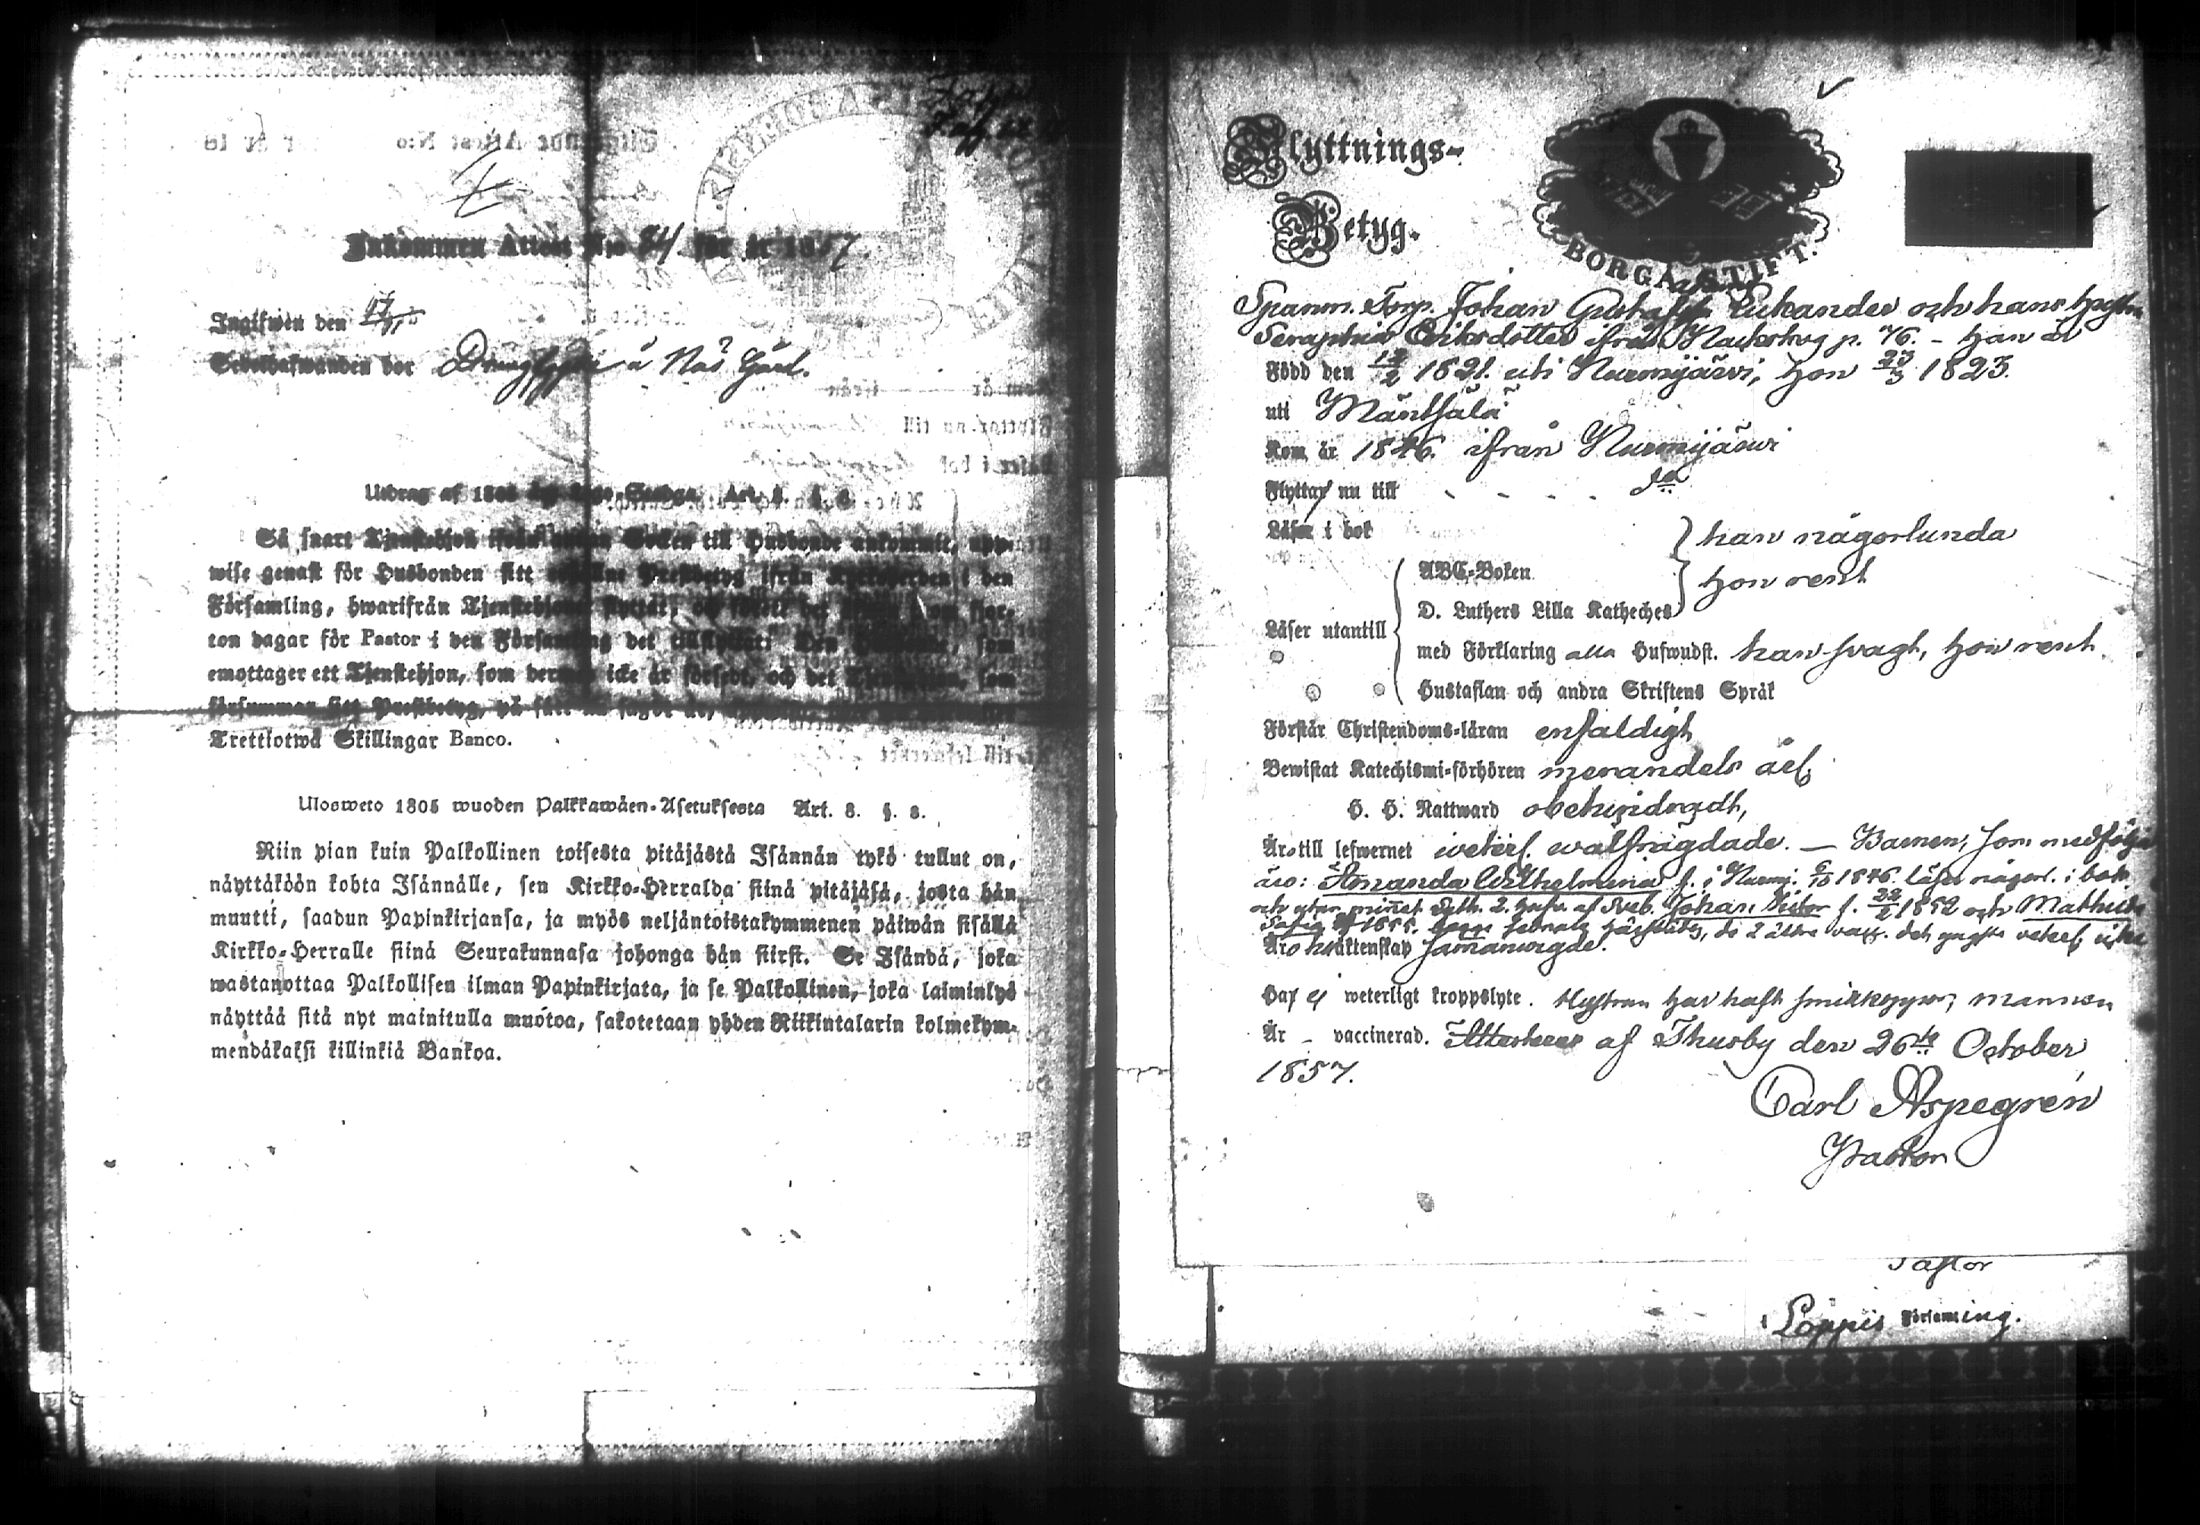 Inkommen Attest N:o 34 för år 1857.
Ingifwen den
å Näs Gård.
Utdrag af 1805 Art. 8. §. 8.
Så snart Tjenstehjon ifrån annan Socken till Husbonde ankommit, upp-
wise genast för Husbonden sitt Prestbetyg ifrån Kyrkoherden i den
Församling, hwarifrån Tjenstehjonet flyttat, och
ton dagar för Pastor i den Församling det tillflyttat. Den som
emottager ett Tjenstehjon, som dermed icke är försedt, och det Tjenstehjon, som
försummar sitt Prestbetyg, på sätt nu sagdt är,
Trettiotwå Skillingar Banco.
Ulosweto 1805 wuoden Palkkawäen-Asetuksesta Art. 8. §. 8.
Niin pian kuin Palkollinen toisesta pitäjästä Isännän tykö tullut on,
näyttäköön kohta Isännälle, sen Kirkko-Herralda siinä pitäjäsä, josta hän
muutti, saadun Papinkirjansa, ja myös neljäntoistakymmenen päiwän sisällä
Kirkko-Herralle siinä Seurakunnasa johonga hän siirsi. Se Isändä, joka
wastanottaa Palkollisen ilman Papinkirjata, ja se Palkollinen, joka laiminlyö
näyttää sitä nyt mainitulla muotoa, sakotetaan yhden Riikintalarin kolmekym-
mendäkaksi killinkiä Bankoa.
Flyttnings-
Betyg.
BORGÅ STIFT.
Spanm. Torp. Johan Gustafss. Lukander och hans hustru
Seraphia Eriksdotter ifrån Nackskog p. 76. - Han är
Född den 12/2 1821. uti Nurmijärvi, hon 23/3 1823.
uti Mäntsälä
Kom år 1846. ifrån Nurmijärvi
Flyttar nu till - - - - do
Läser i bok } han någorlunda
ABC-Boken hon rent
Läser utantill { D. Luthers Lilla Katheches
med Förklaring alla Hufwudst. han svagt, hon rent.
Hustaflan och andra Skriftens Språk
Förstår Christendoms-läran enfaldigt
Bewistat Katechismi-förhören merandels årl.
H. H. Nattward obehindradt,
Äro till lefwernet veterl. wälfrägdade. — Barnen, som medfölja
äro: Amanda Wilhelmina f. i Nurmj. 6/10 1846. läser någorl. i bok
och utan minnet Johan Victor f. 22/2 1852 och Mathilda
Äro i Äktenskap sammanwigde.
Haf ej weterligt kroppslyte. Hustrun har haft smittkoppor, mannen
Är - vaccinerad. Attesterar af Thusby den 26te October
1857.
Carl Aspegrén
Pastor
Pastor
i Loppis Församling.